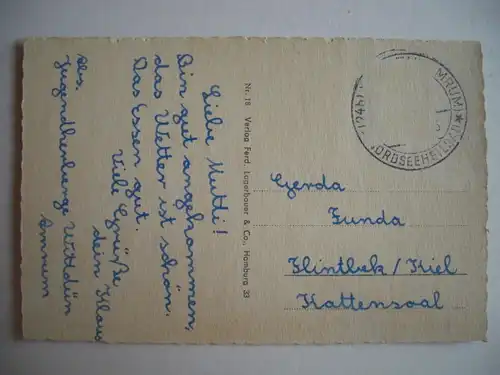 Liebe Mutti!
Bin gut angekommen,
das Wetter ist schön.
Das Essen gut.
Viele Grüße
dein Klaus
Abs.
Jugendherberge Wittdün
Ammum
Nr. 18 Verlag Ferd. Lagerbauer & Co., Hamburg 33
(24a)
MRUM
ORDSEEHEILBAD
Gerda
Junda
Flintbek/Kiel
Kattensaal